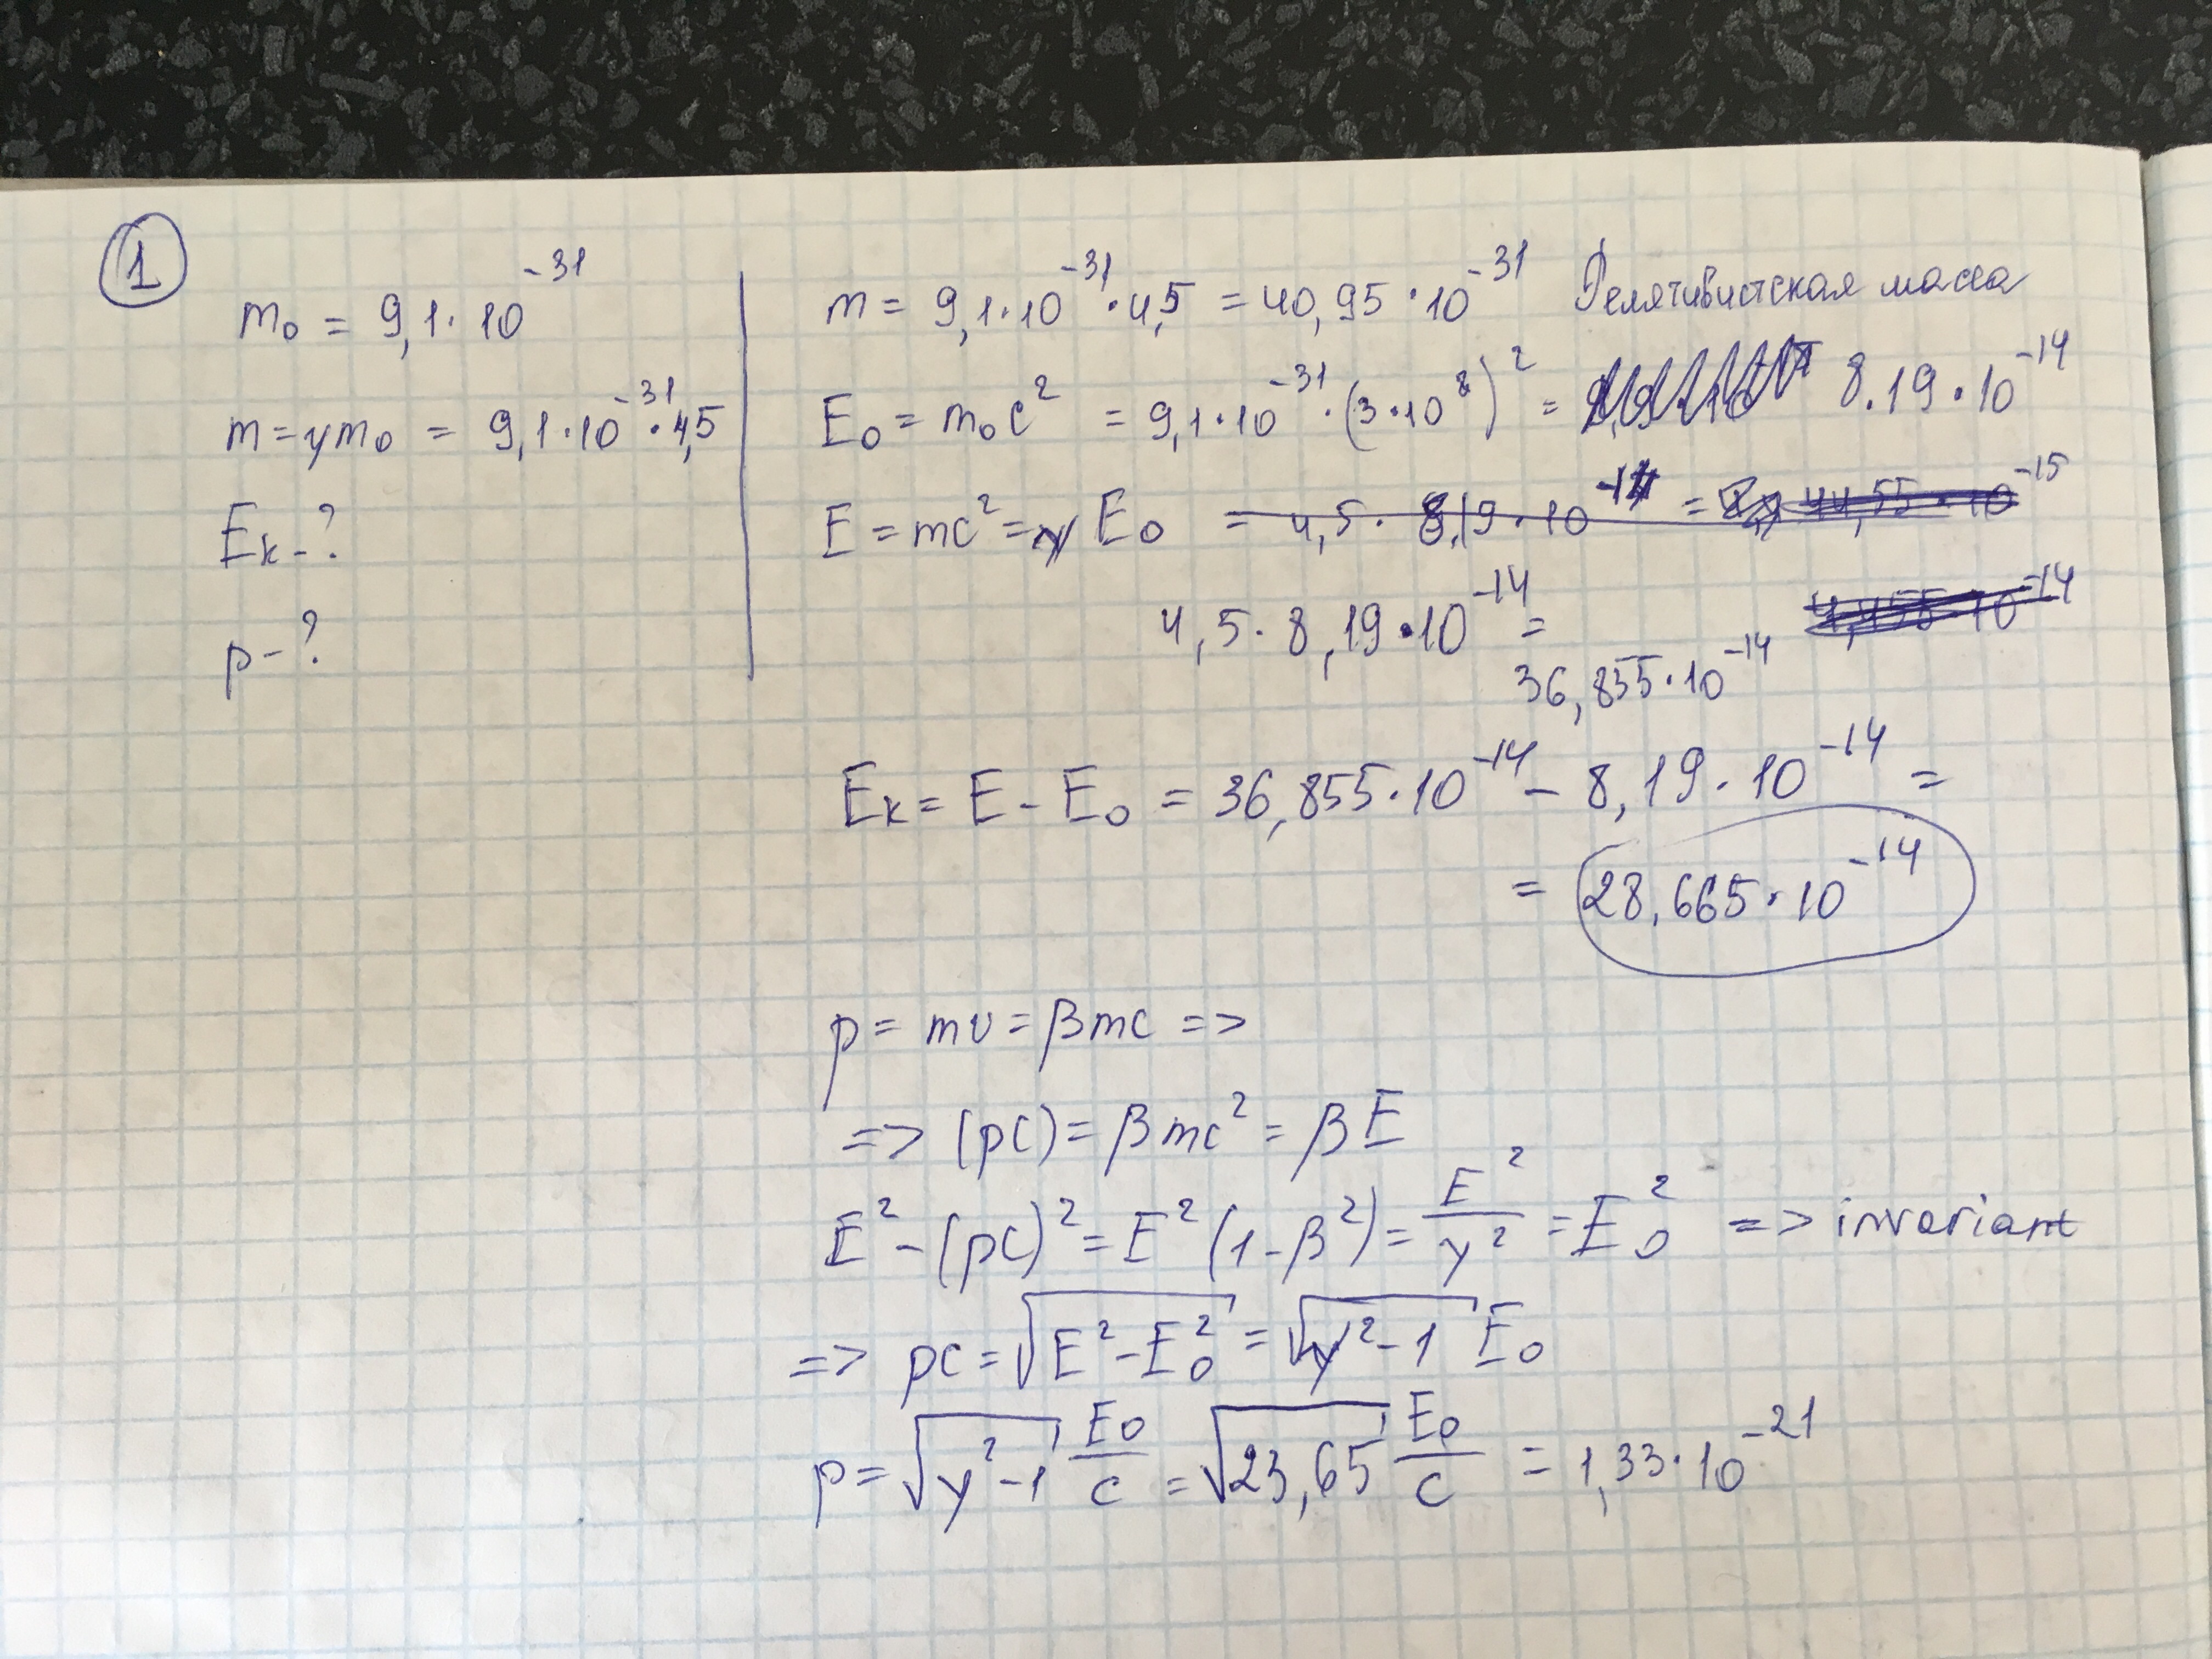 1
m₀ = 9,1·10⁻³¹
m = γm₀ = 9,1·10⁻³¹·4,5
Eк - ?
p - ?
m = 9,1·10⁻³¹·4,5 = 40,95·10⁻³¹ Релятивистская масса
E₀ = m₀c² = 9,1·10⁻³¹·(3·10⁸)² = 8.19·10⁻¹⁴
E = mc² = γE₀ = 4,5·8,19·10⁻¹⁴ = 44,55·10⁻¹⁵
4,455·10⁻¹⁴
4,5·8,19·10⁻¹⁴ =
36,855·10⁻¹⁴
Eк = E - E₀ = 36,855·10⁻¹⁴ - 8,19·10⁻¹⁴ =
= 28,665·10⁻¹⁴
p = mv = βmc =>
=> (pc) = βmc² = βE
E² - (pc)² = E²(1-β²) = E²/γ² = E₀² => invariant
=> pc = √(E²-E₀²) = √(γ²-1) E₀
p = √(γ²-1) E₀/c = √23,65 E₀/c = 1,33·10⁻²¹